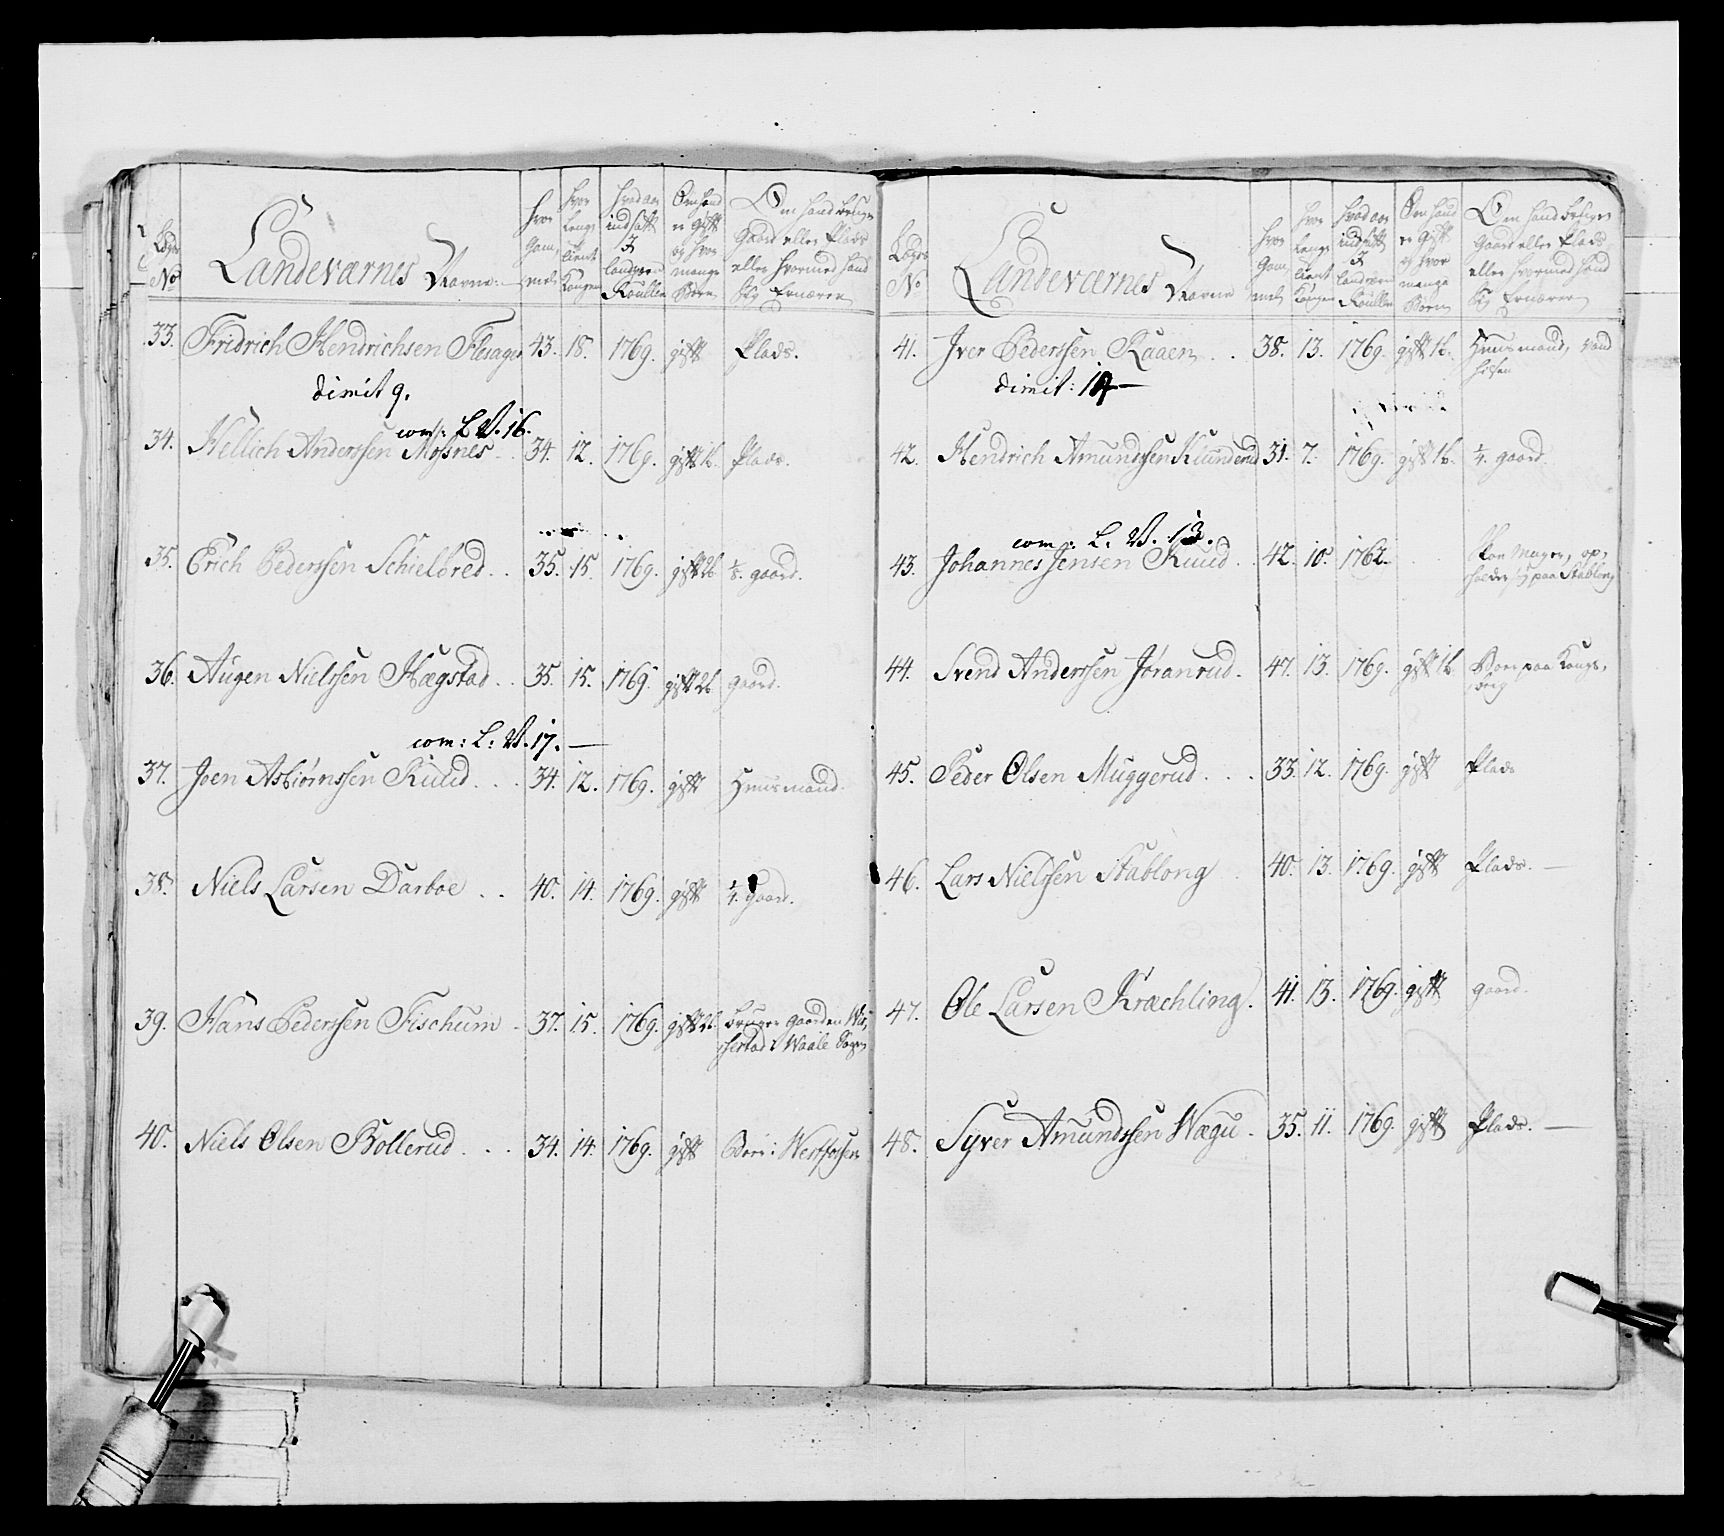 Landeværnes Navne
No
hvor Gammel
hvor lenge tient Kongen
hvad aar indsatt I landværn Roullen
Om hand er Gift og hvor mange Børn
Om hand bruger Gaard eller Plads eller hvormed hand sig Ernærer
33. Fridrich Hendrichsen Flesager 43. 18. 1769. gift Plads.
dimit 9.
com: L: V. 16.
34. Hellich Anderssen Mosnes 34. 12. 1769. gift 1b. Plads.
35. Erich Pederssen Schielbred 35. 15. 1769. gift 2b. gaard.
36. Augen Nielssen Hægstad 35. 15. 1769. gift 2b. gaard.
com: L: V. 17.
37. Joen Asbiørnssen Ruud 34. 12. 1769. gift Huusmand.
38. Niels Larsen Darboe 40. 14. 1769. gift 1/4. gaard.
39. Hans Pederssen Fischum 37. 15. 1769. gift 2b. bruger gaarden
i Waale Sogn
40. Niels Olsen Bollerud 34. 14. 1769. gift Boer i Westfossen
Landeværnes Navne
No
hvor Gammel
hvor lenge tient Kongen
hvad aar indsatt I landværn Roullen
Om hand er Gift og hvor mange Børn
Om hand bruger Gaard eller Plads eller hvormed hand sig Ernærer
41. Iver Pederssen Raaen 38. 13. 1769. gift 1b. Huusmand,
dimit: 10
42. Hendrich Amundssen Klunderud 31. 7. 1769. gift 1b. 1/4. gaard.
com: L: V. 13.
43. Johannes Jensen Ruud 42. 10. 1762. Skoe Mager, op-
holder sig paa Stablong
44. Svend Anderssen Jøranrud 47. 13. 1769. gift 1b. Boer paa Kongs-
berg
45. Peder Olsen Muggerud 33. 12. 1769. gift Plads
46. Lars Nielssen Stablong 40. 13. 1769. gift Plads.
47. Ole Larsen Kræchling. 41. 13. 1769. gift gaard.
48. Syver Amundssen Wægu 35. 11. 1769. gift Plads.